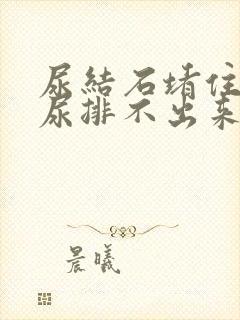 尿結石堵住
尿排不出來
晨曦